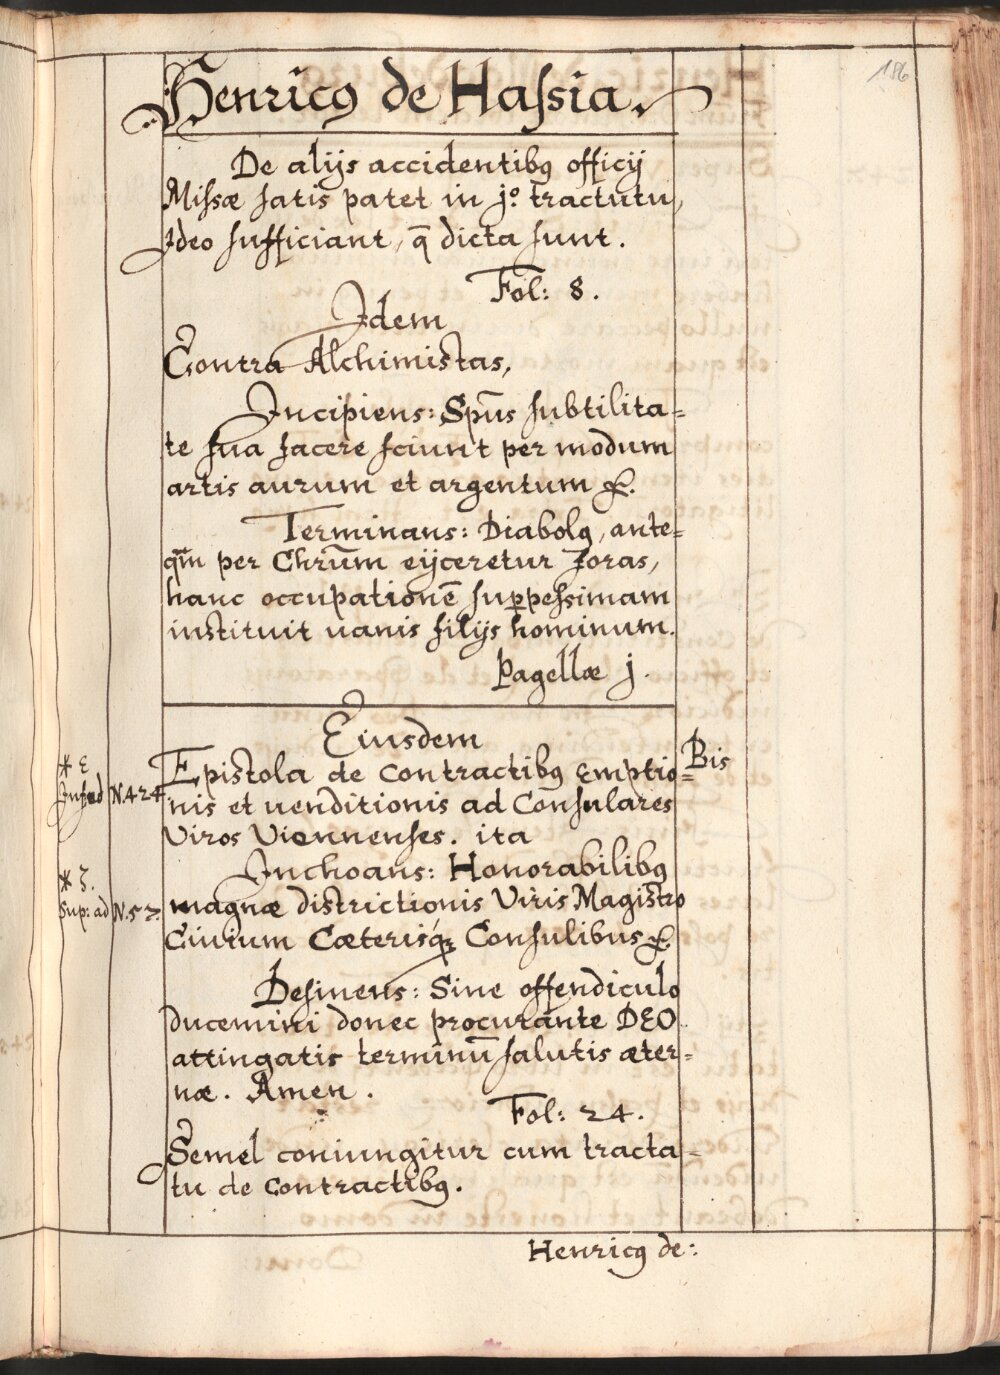 186
Henricꝯ de Hassia.
De alijs accidentibꝯ officij
Missæ satis patet in jº. tractutu,
Ideo sufficiant, q̄ dicta sunt.
Fol: 8.
Idem
Contra Alchimistas,
Incipiens: Spūs subtilita=
te sua facere sciunt per modum
artis aurum et argentum &.
Terminans: Diabolꝯ, ante=
qm̄ per Chrūm eijceretur foras,
hanc occupationē suppessimam
instituit vanis filijs hominum.
Pagellæ j.
Eiusdem
Epistola de Contractibꝯ Emptio= Bis
* ε
Inf: ad N.424
nis et venditionis ad Consulares
Viros Viennenses. ita
Inchoans: Honorabilibꝯ
* 3.
Sup: ad N.52.
magnæ districtionis Viris Magistro
Civium Cæterisq́ꝫ Consulibus &.
Desinens: Sine offendiculo
ducemini donec procurante DEO
attingatis terminū salutis æter=
næ. Amen.
Fol: 24.
Semel coniungitur cum tracta=
tu de Contractibꝯ.
Henricꝯ de: